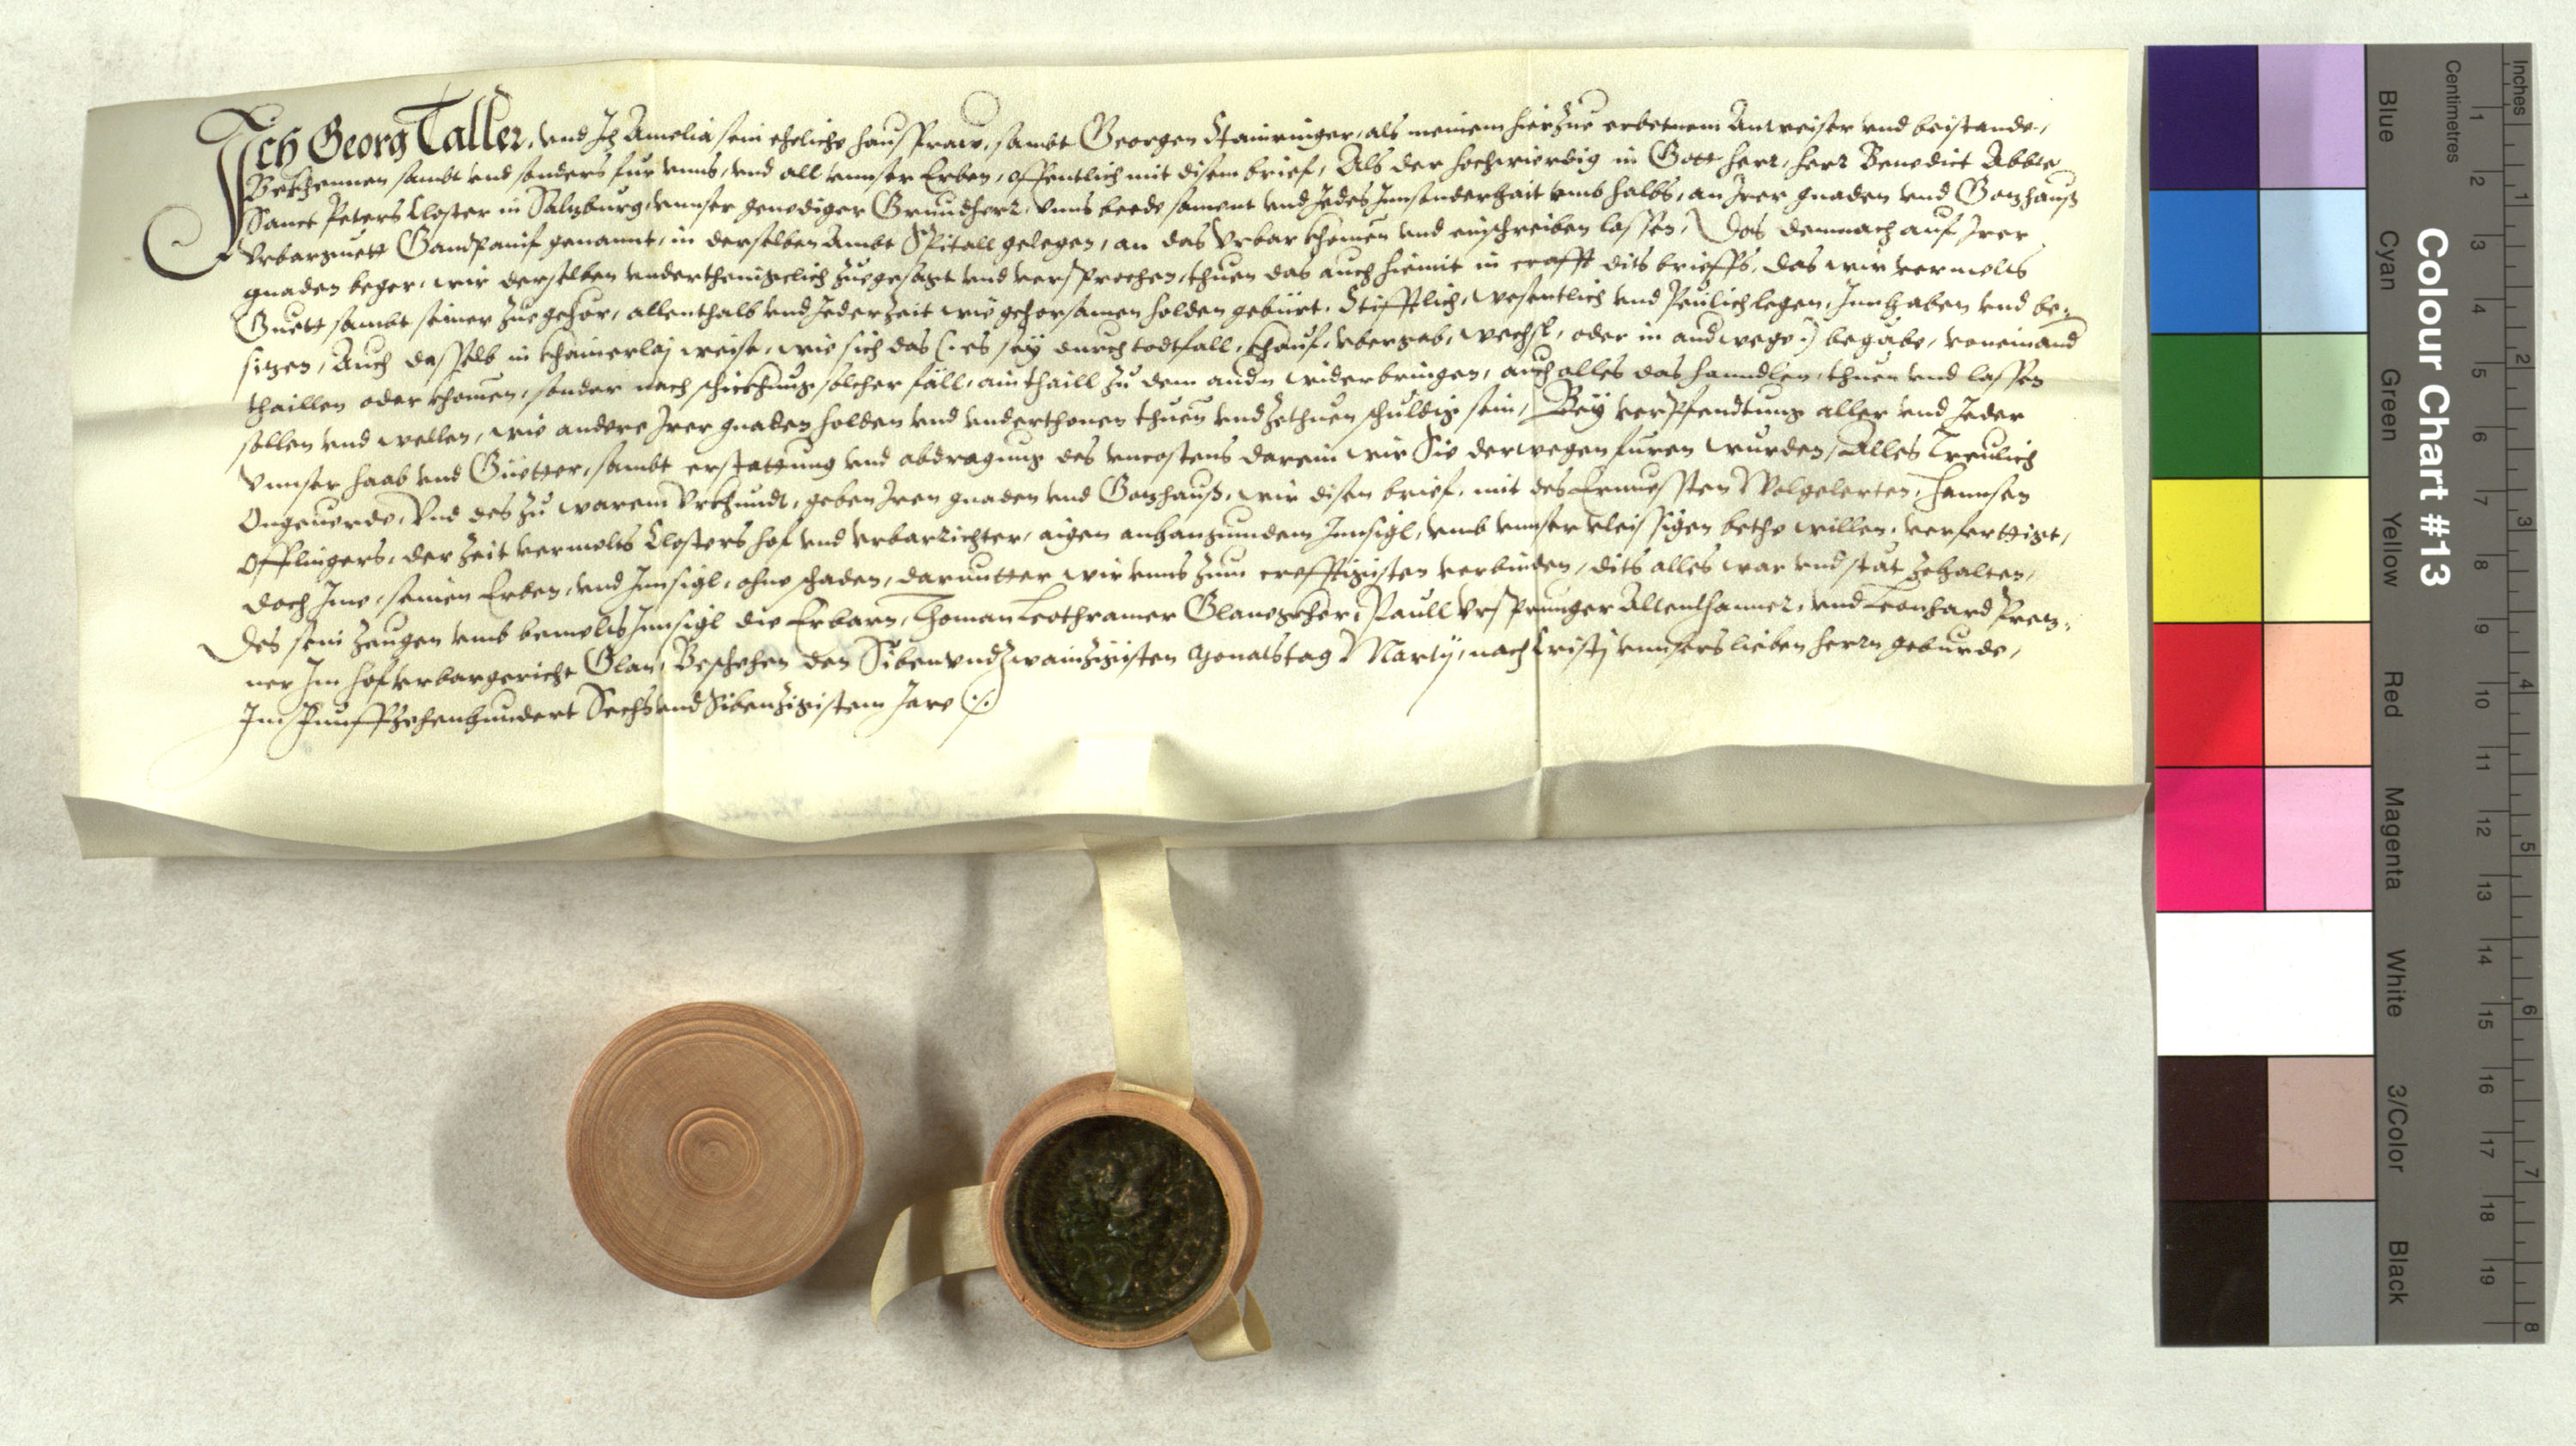 Ich Georg Taller, vnd Ich Amelia sein eheliche hausfraw, sambt Georgen Stainringer, als meinem hierzue erbetnem Anweiser vnd beistande,
Bekhennen sambt vnd sonders fur vnns, vnd all vnnser Erben, offentlich mit disem brief, Als der hochwierdig in Gott herr, herr Benedict Abbte
Sanct Peters Closter in Salzburg, vnnser genediger Grundherr, vnns beede sament vnd Jedes Innsonderhait vmb halbs, an Irer gnaden vnd Gotzhauß
Vrbarguett Gandpanif genannt, in derselben Ambt Spitall gelegen, an das Vrbar khomen vnd einschreiben lassen, Das demnach auf Irer
gnaden beger, wir derselben vnderthenigclich zuegesagt vnd versprochen, thuen das auch hiemit in crafft dits brieffs, das wir vermelts
Guett sambt seiner zuegehör, allenthalb vnd Jederzeit wie gehorsamen holden gebürt, Stifftlich, wesentlich vnd Peulich legen, Innhaben vnd be¬
sitzen, Auch dasselb in khainerlaj weise, wie sich das (: es sey durch todtfall, khauf, vbergab, wechsl, oder in andwege :) begäbe, voneinand
thaillen oder khomen, sonder nach schickhung solcher fäll, ain thaill zu dem andn widerbringen, auch alles das hanndlen, thuen vnd lassen
sollen vnd wellen, wie andere Irer gnaden holden vnd vnderthonen thuen vnd zethuen schuldig sein, Bey verpfendtung aller vnd Jeder
Vnnser haab vnd Güetter, sambt erstattung vnd abdragung des vncostens darein wir Sie derwegen furen wurden, Alles Treulich
Ongeuerde, Vnd des zu warem Vrkhundt, geben Iren gnaden vnd Gotzhauß, wir disen brief, mit des Ernuessten Wolgelerten, Hannsen
Offlingers, der zeit vermelts Closters hof vnd vrbarrichter, aigen anhangundem Innsigl, vmb vnnser vleissigen bethe willen, verferttigt,
doch Ime, seinen Erben, vnd Innsigl, ohne schaden, darunder wir vnns zum crefftigisten verbinden, dits alles war vnd stät zehalten,
Des sein zeugen vmb bemelts Innsigl die Erbarn, Thoman Leothramer Glanegkher, Paull Vrsprunger Altenthanner, vnd Leonhard Pretz¬
ner Im hofvrbargericht Glan, Beschehen den Sibenvndzwainzigisten Monatstag Martij, nach Cristj vnnsers lieben herrn geburde,
Im Funffzehenhundert Sechsvndsibenzigistem Jare (:/:)
Colour Chart #13
Blue
Cyan
Green
Yellow
Red
Magenta
White
3/Color
Black
Centimetres
1 2 3 4 5 6 7 8 9 10 11 12 13 14 15 16 17 18 19
Inches
1 2 3 4 5 6 7 8